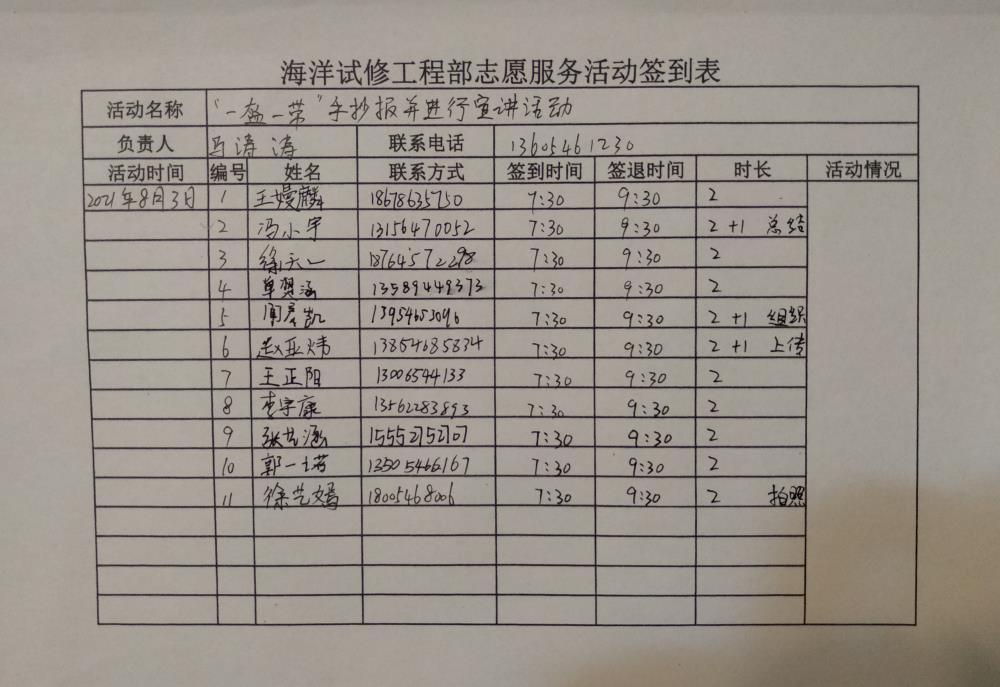 海洋试修工程部志愿服务活动签到表
活动名称 "一盔一带"手抄报并进行宣讲活动
负责人 马涛涛 联系电话 13605461230
活动时间 编号 姓名 联系方式 签到时间 签退时间 时长 活动情况
2021年8月3日 1 王嫚麟 18678635750 7:30 9:30 2
2 冯小宇 13156470052 7:30 9:30 2+1 总结
3 徐天一 18764572298 7:30 9:30 2
4 单熙涵 13589449373 7:30 9:30 2
5 凯 13954653096 7:30 9:30 2+1 组织
6 赵亚炜 13854685834 7:30 9:30 2+1 上传
7 王正阳 13006544133 7:30 9:30 2
8 李宇康 13562283893 7:30 9:30 2
9 张艺涵 15552752707 7:30 9:30 2
10 郭一诺 13505466167 7:30 9:30 2
11 徐艺嫣 18005468006 7:30 9:30 2 拍照